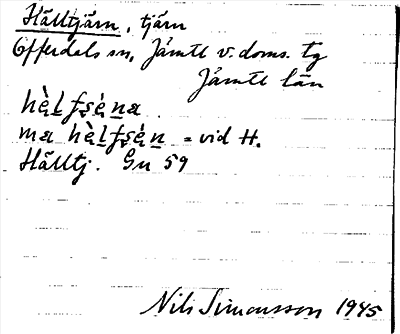 Hälltjärn, tjärn
Offerdals sn, Jämtl v. doms. tg
Jämtl län
= vid H.
Hälltj. Gu 59
Nils Simonsson 1945